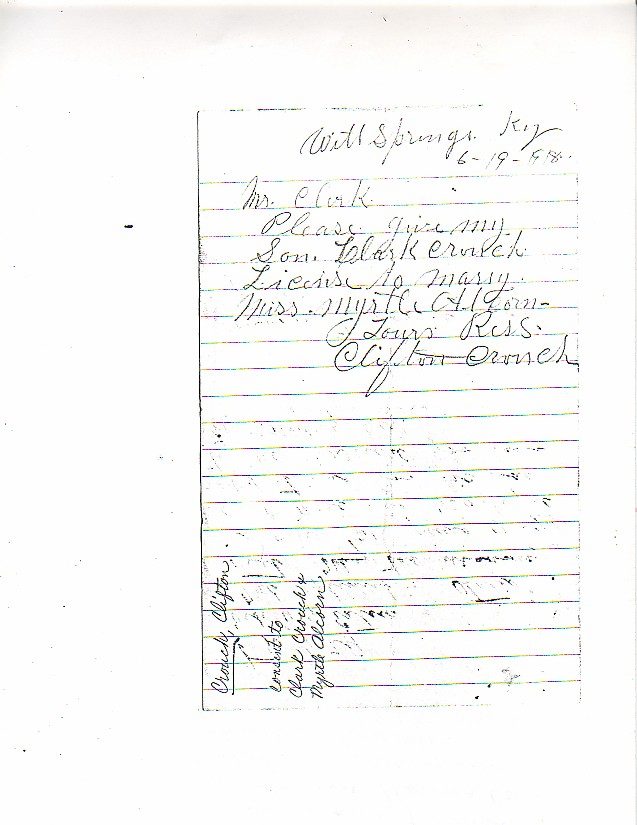 Will Springs. Ky
6-19-98.
Mr. Clerk
Please give my
Son. Clark Crouch
License to marry.
Miss. Myrtle Alcorn-
Yours Ress.
Clifton Crouch
Crouch, Clifton
consent to
Clark Crouch &
Myrtle Alcorn